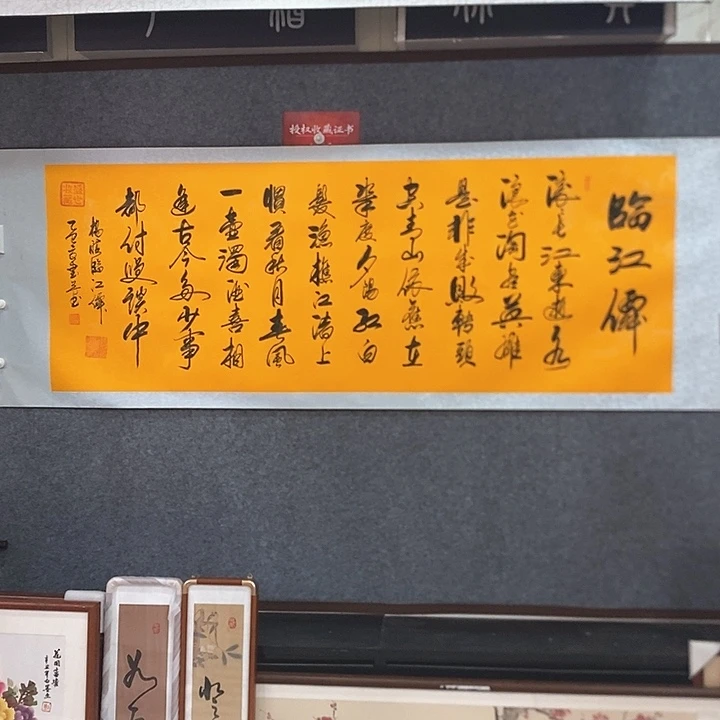 授权收藏证书
臨江僊
滾滾長江東逝水
浪花淘盡英雄
是非成敗轉頭
空青山依舊在
幾度夕陽紅白
髮漁樵江渚上
慣看秋月春風
一壺濁酒喜相
逢古今多少事
都付笑談中
楊慎臨江僊